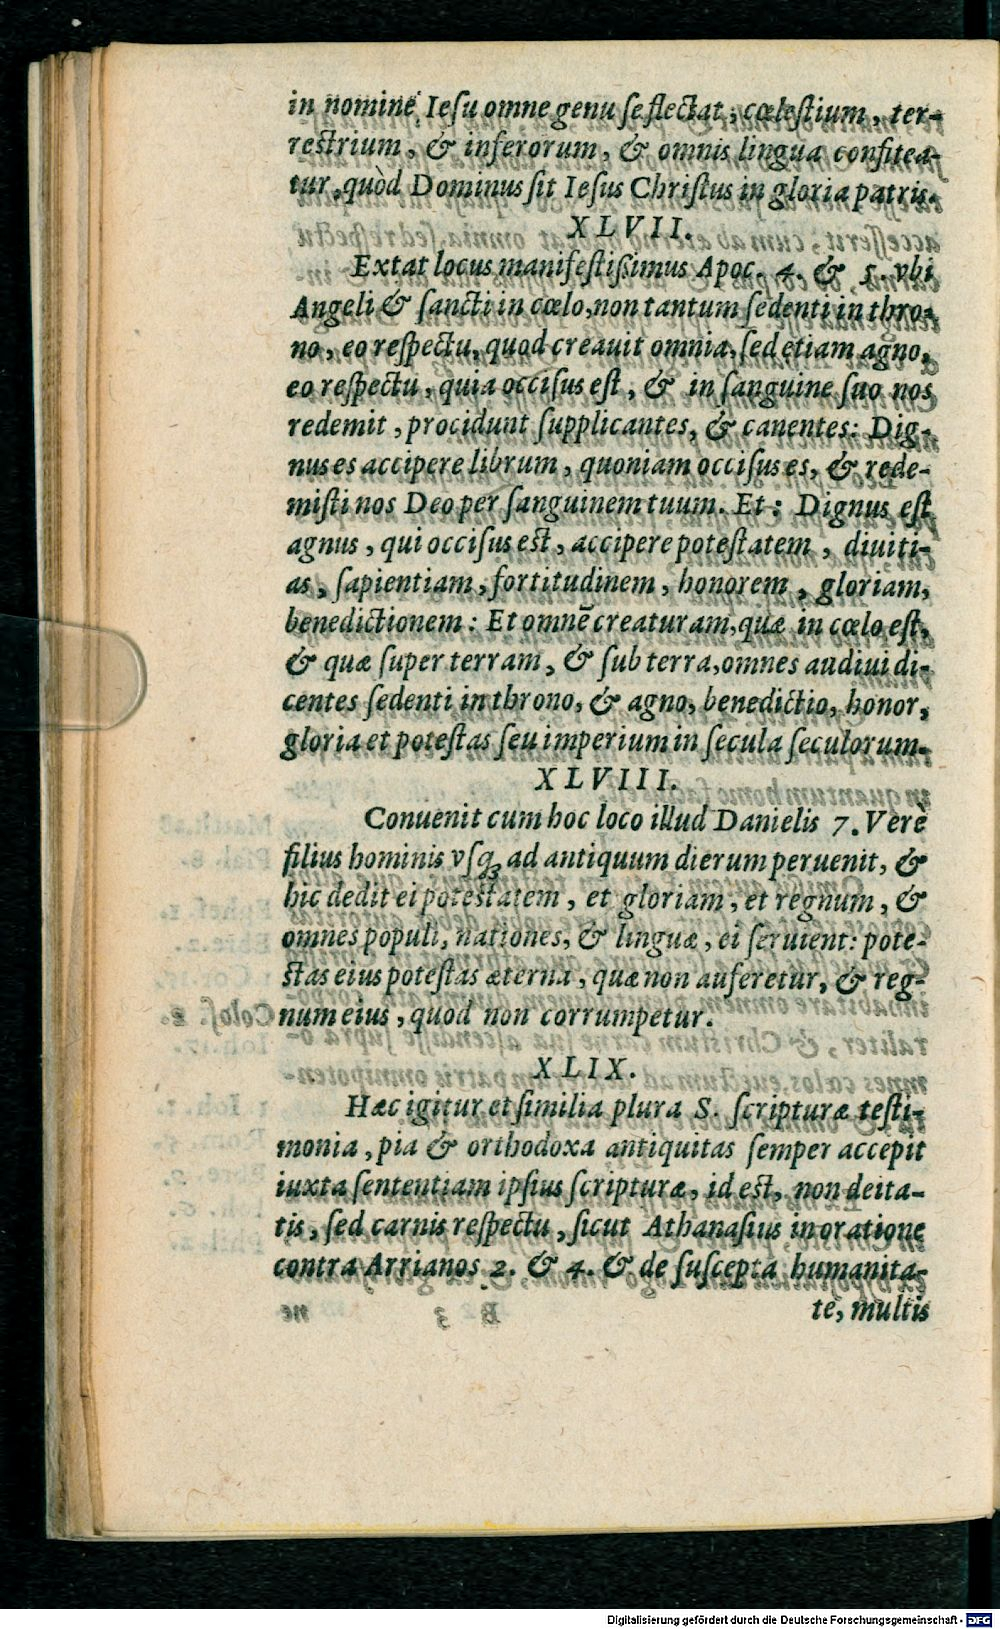 in nomine Iesu omne genu se flectat, cœlestium, ter-
restrium, & inferorum, & omnis lingua confitea-
tur, quòd Dominus sit Iesus Christus in gloria patris.
XLVII.
Extat locus manifestissimus Apoc. 4. & 5. vbi
Angeli & sancti in cœlo, non tantum sedenti in thro-
no, eo respectu, quod creauit omnia, sed etiam agno,
eo respectu, quia occisus est, & in sanguine suo nos
redemit, procidunt supplicantes, & canentes: Dig-
nus es accipere librum, quoniam occisus es, & rede-
misti nos Deo per sanguinem tuum. Et: Dignus est
agnus, qui occisus est, accipere potestatem, diuiti-
as, sapientiam, fortitudinem, honorem, gloriam,
benedictionem: Et omnē creaturam, quæ in cœlo est,
& quæ super terram, & sub terra, omnes audiui di-
centes sedenti in throno, & agno, benedictio, honor,
gloria et potestas seu imperium in secula seculorum.
XLVIII.
Conuenit cum hoc loco illud Danielis 7. Verè
filius hominis vsq3 ad antiquum dierum peruenit, &
hic dedit ei potestatem, et gloriam, et regnum, &
omnes populi, nationes, & linguæ, ei seruient: pote-
stas eius potestas æterna, quæ non auferetur, & reg-
num eius, quod non corrumpetur.
XLIX.
Hæc igitur et similia plura S. scripturæ testi-
monia, pia & orthodoxa antiquitas semper accepit
iuxta sententiam ipsius scripturæ, id est, non deita-
tis, sed carnis respectu, sicut Athanasius in oratione
contra Arrianos 2. & 4. & de suscepta humanita-
te, multis
Digitalisierung gefördert durch die Deutsche Forschungsgemeinschaft - DFG